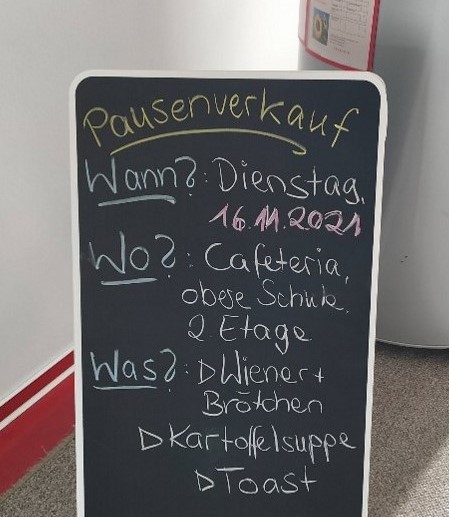 Pausenverkauf
Wann?: Dienstag,
16.11.2021
Wo?: Cafeteria,
obere Schule,
2 Etage
Was?: ▷Wiener +
Brötchen
▷Kartoffelsuppe
▷Toast